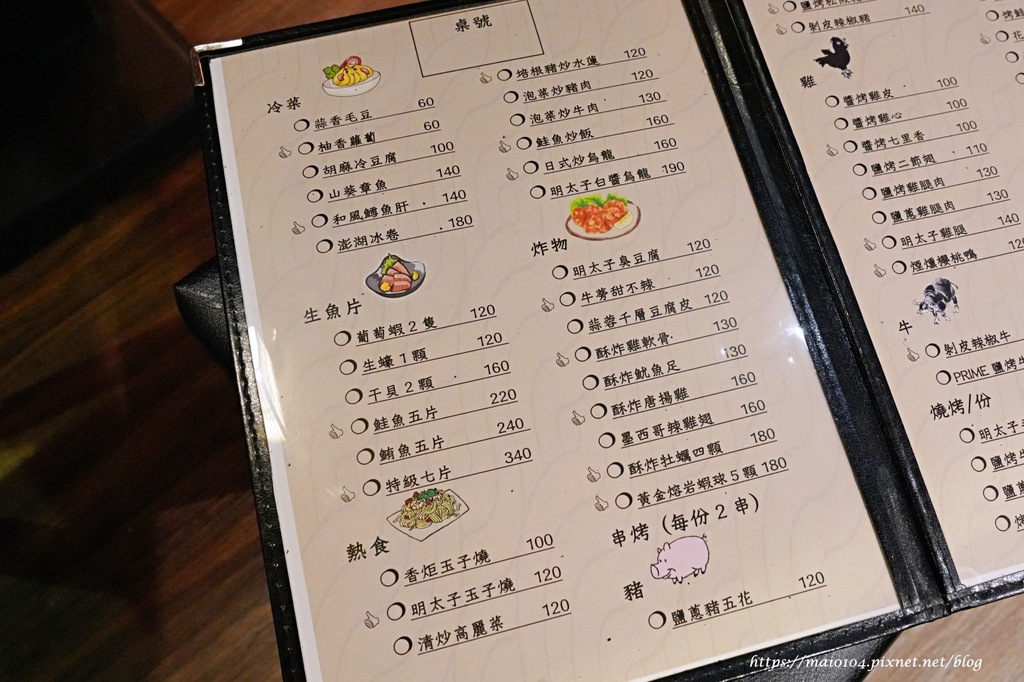 桌號
冷菜
蒜香毛豆 60
柚香蘿蔔 60
胡麻冷豆腐 100
山葵章魚 140
和風鱈魚肝 140
澎湖冰卷 180
生魚片
葡萄蝦2隻 120
生蠔1顆 120
干貝2顆 160
鮭魚五片 220
鮪魚五片 240
特級七片 340
熱食
香炬玉子燒 100
明太子玉子燒 120
清炒高麗菜 120
培根豬炒水蓮 120
泡菜炒豬肉 120
泡菜炒牛肉 130
鮭魚炒飯 160
日式炒烏龍 160
明太子白醬烏龍 190
炸物
明太子臭豆腐 120
牛蒡甜不辣 120
蒜蓉千層豆腐皮 120
酥炸雞軟骨 130
酥炸魷魚足 130
酥炸唐揚雞 160
墨西哥辣雞翅 160
酥炸牡蠣四顆 180
黃金熔岩蝦球5顆 180
串烤(每份2串)
豬
鹽蔥豬五花 120
剝皮辣椒豬 140
雞
醬烤雞皮 100
醬烤雞心 100
醬烤七里香 100
鹽烤二節翅 110
鹽烤雞腿肉 130
鹽蔥雞腿肉 130
明太子雞腿 140
煙燻櫻桃鴨
牛
剝皮辣椒牛
PRIME 鹽烤牛
燒烤/份
明太子
鹽烤
https://maio104.pixnet.net/blog